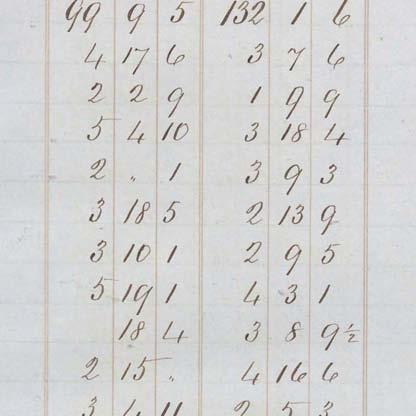 99 9 5 132 1 6
4 17 6 3 7 6
2 2 9 1 9 9
5 4 10 3 18 4
2 " 1 3 9 3
3 18 5 2 13 9
3 10 1 2 9 5
5 19 1 4 3 1
18 4 3 8 9½
2 15 " 4 16 6
3 4 11 2 5 3